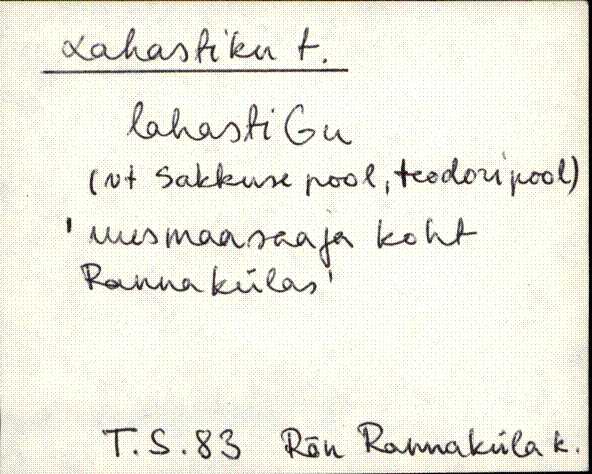 Lahastiku t.
lahastiGu
(vt Sakkuse pool, teodori pool)
'uusmaasaaja koht
Rannakülas'
T.S.83 Rõn Rannaküla k.